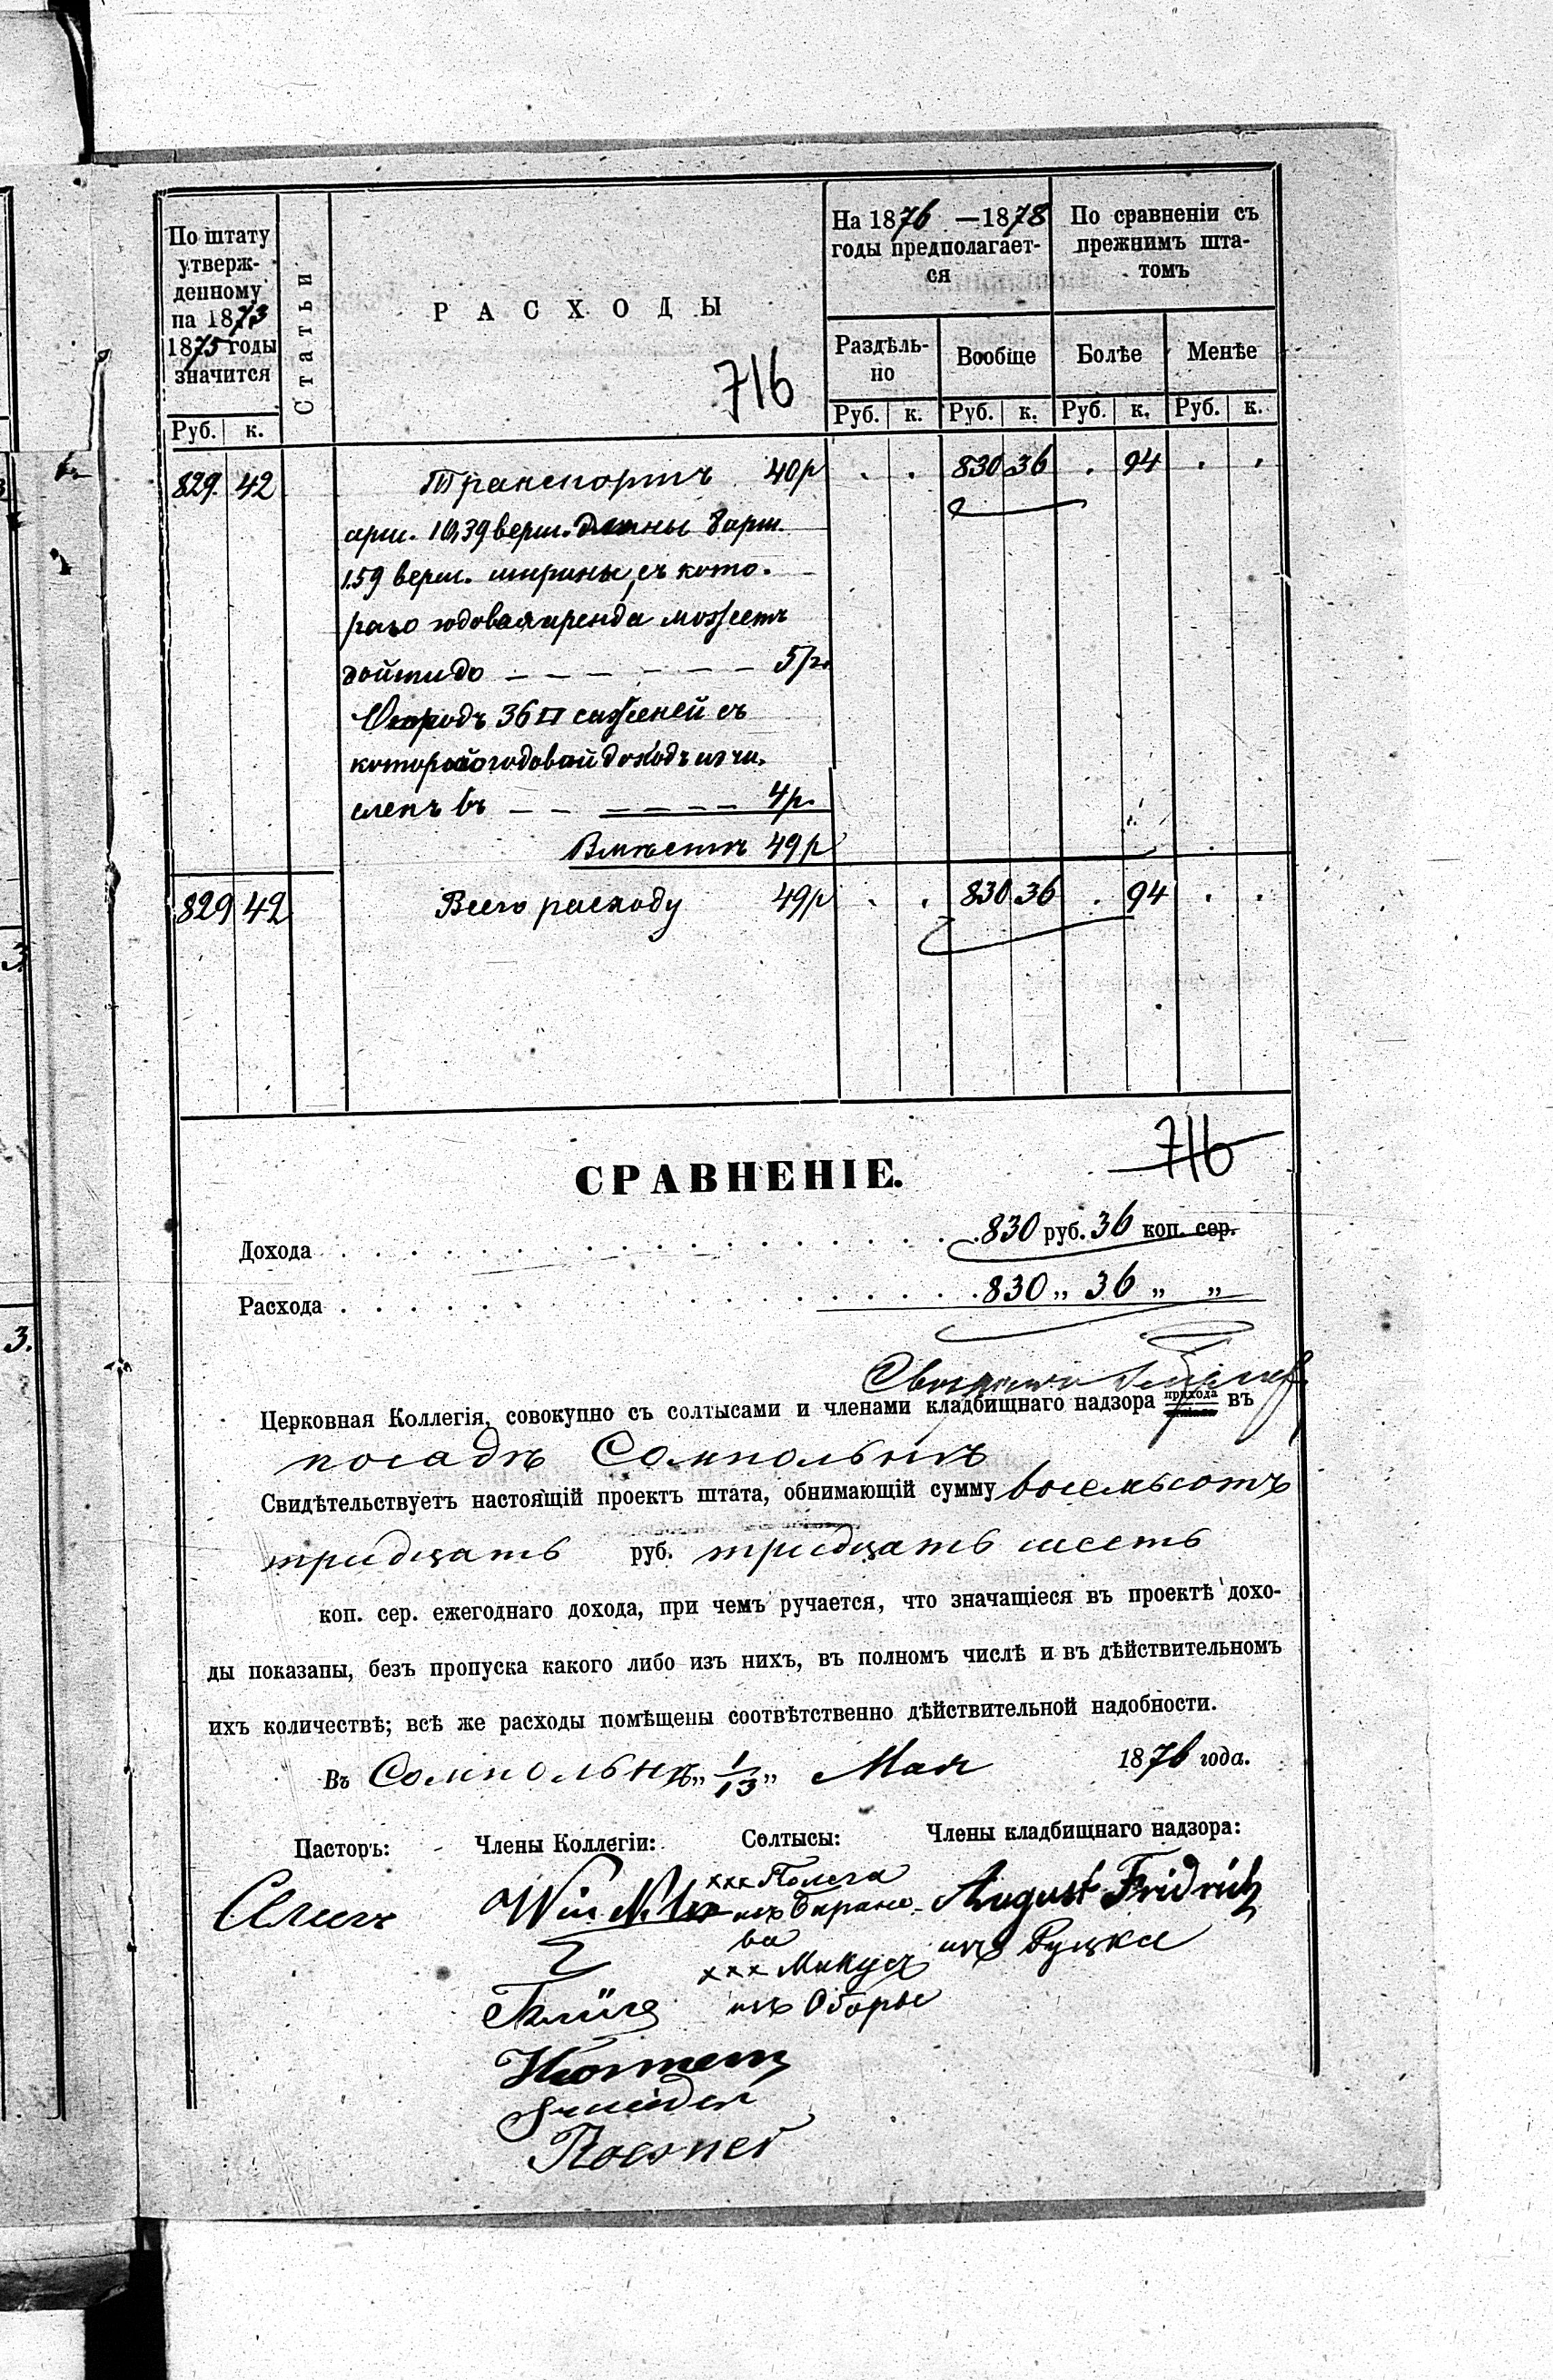 По штату
утверж-
денному
на 1873
1875 годы
значится
Руб. к.
Статьи
РАСХОДЫ
716
На 1876 —1878
годы предполагает-
ся
По сравненіи съ
прежнимъ шта-
томъ
Раздѣль-
но
Вообще
Болѣе
Менѣе
Руб. к. Руб. к. Руб. к. Руб. к.
829. 42 Транспортъ 40р . . 830 36 . 94 . .
арш. 10,39 верш. длины 8 арш.
1.59 верш. ширины, съ кото-
раго годовая аренда можетъ
дойти до — — — — — — 5р.
Огородъ 36 □ саженей съ
котораго годовой доходъ исчи-
сленъ въ — — — — — — 4р.
Вмѣстѣ 49р
829 42 Всего расходу 49р . . 830 36 . 94 . .
716
СРАВНЕНІЕ.
Дохода . . . . . 830 руб. 36 коп. сер.
Расхода . . . . . 830 „ 36 „ „
Церковная Коллегія, совокупно съ солтысами и членами кладбищнаго надзора прихода въ
посадѣ Сомпольнѣ
Свидѣтельствуетъ настоящій проектъ штата, обнимающій сумму восемьсотъ
тридцать руб. тридцать шесть
коп. сер. ежегоднаго дохода, при чемъ ручается, что значащіеся въ проектѣ дохо-
ды показаны, безъ пропуска какого либо изъ нихъ, въ полномъ числѣ и въ дѣйствительномъ
ихъ количествѣ; всѣ же расходы помѣщены соотвѣтственно дѣйствительной надобности.
Въ Сомпольнѣ „ 1/13 „ Мая 1876 года.
Пасторъ: Члены Коллегіи: Солтысы: Члены кладбищнаго надзора:
xxx
August Fridrich
xxx Микусъ
изъ
Roesner